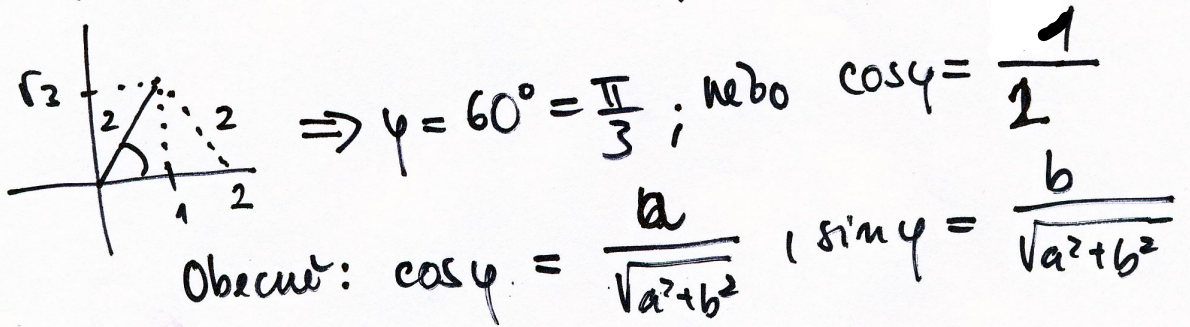 √3 2 2 ⇒ φ = 60° = π/3 ; nebo cosφ = 1/2
1 2
Obecně: cosφ = a/√(a²+b²) , sinφ = b/√(a²+b²)